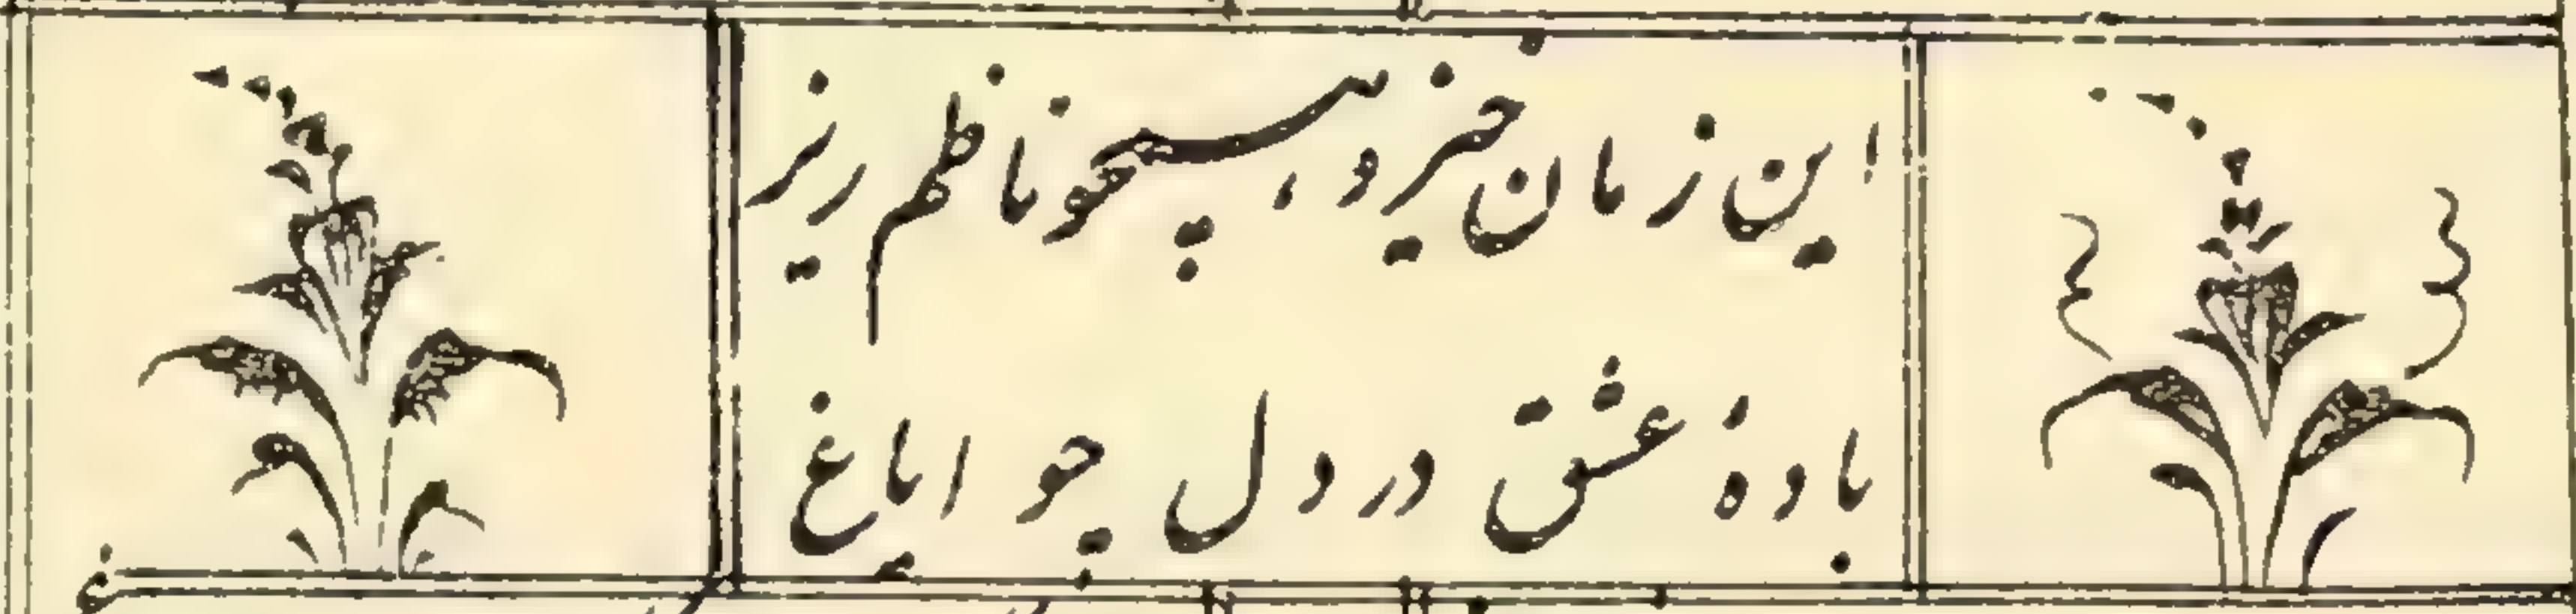 این زمان خیز و، همچو ناظم ریز
بادهٔ عشق در دل چو ایاغ